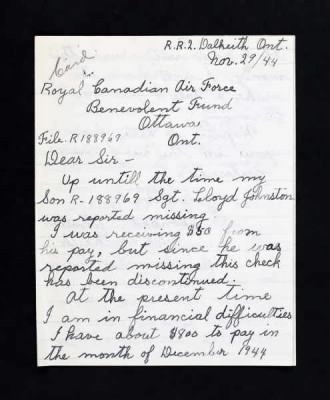 R.R.2. Dalkeith Ont.
Nov. 29/44
Card
Royal Canadian Air Force
Benevolent Fund
Ottawa
File. R188969 Ont.
Dear Sir -
Up untill the time my
Son R-188969 Sgt. Lloyd Johnston
was reported missing.
I was receiving $50 from
his pay, but since he was
reported missing this check
has been discontinued.
At the present time
I am in financial difficulties
I have about $800 to pay in
the month of December 1944